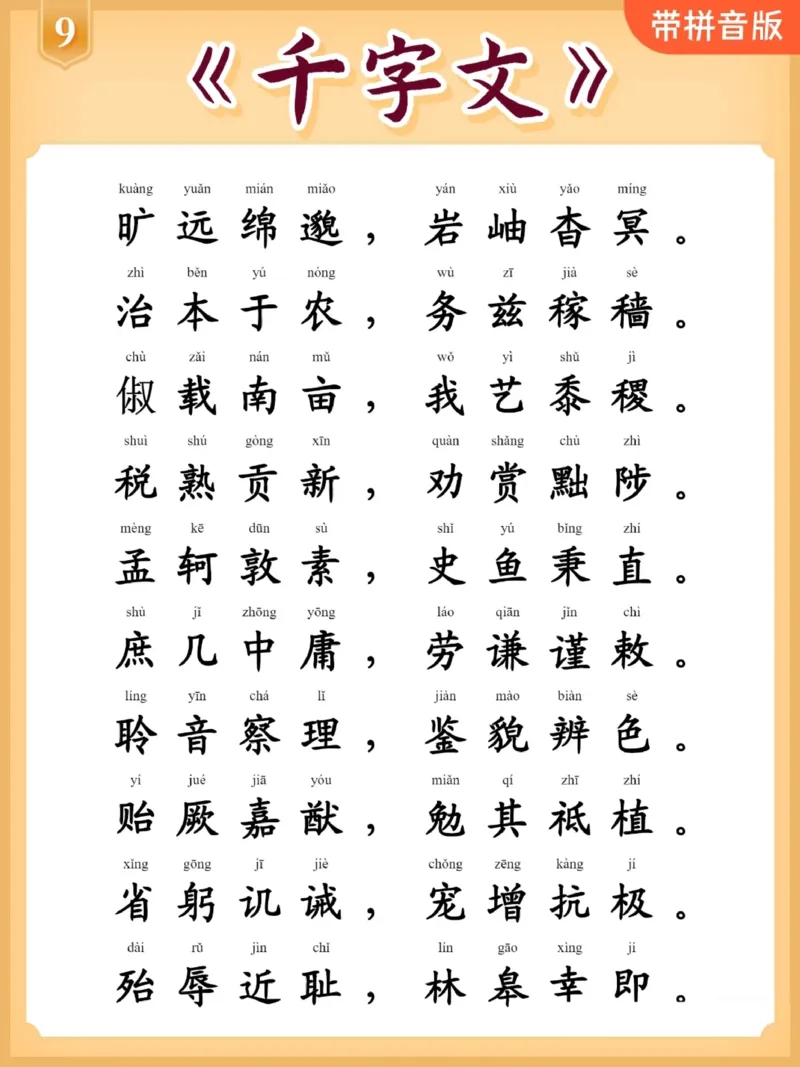 9
带拼音版
《千字文》
kuàng yuǎn mián miǎo yán xiù yǎo míng
旷远绵邈，岩岫杳冥。
zhì běn yú nóng wù zī jià sè
治本于农，务兹稼穑。
chù zǎi nán mǔ wǒ yì shǔ jì
俶载南亩，我艺黍稷。
shuì shú gòng xīn quàn shǎng chù zhì
税熟贡新，劝赏黜陟。
mèng kē dūn sù shǐ yú bǐng zhí
孟轲敦素，史鱼秉直。
shù jǐ zhōng yōng láo qiān jǐn chì
庶几中庸，劳谦谨敕。
líng yīn chá lǐ jiàn mào biàn sè
聆音察理，鉴貌辨色。
yí jué jiā yóu miǎn qí zhī zhí
贻厥嘉猷，勉其祗植。
xǐng gōng jī jiè chǒng zēng kàng jí
省躬讥诫，宠增抗极。
dài rǔ jìn chǐ lín gāo xìng jí
殆辱近耻，林皋幸即。